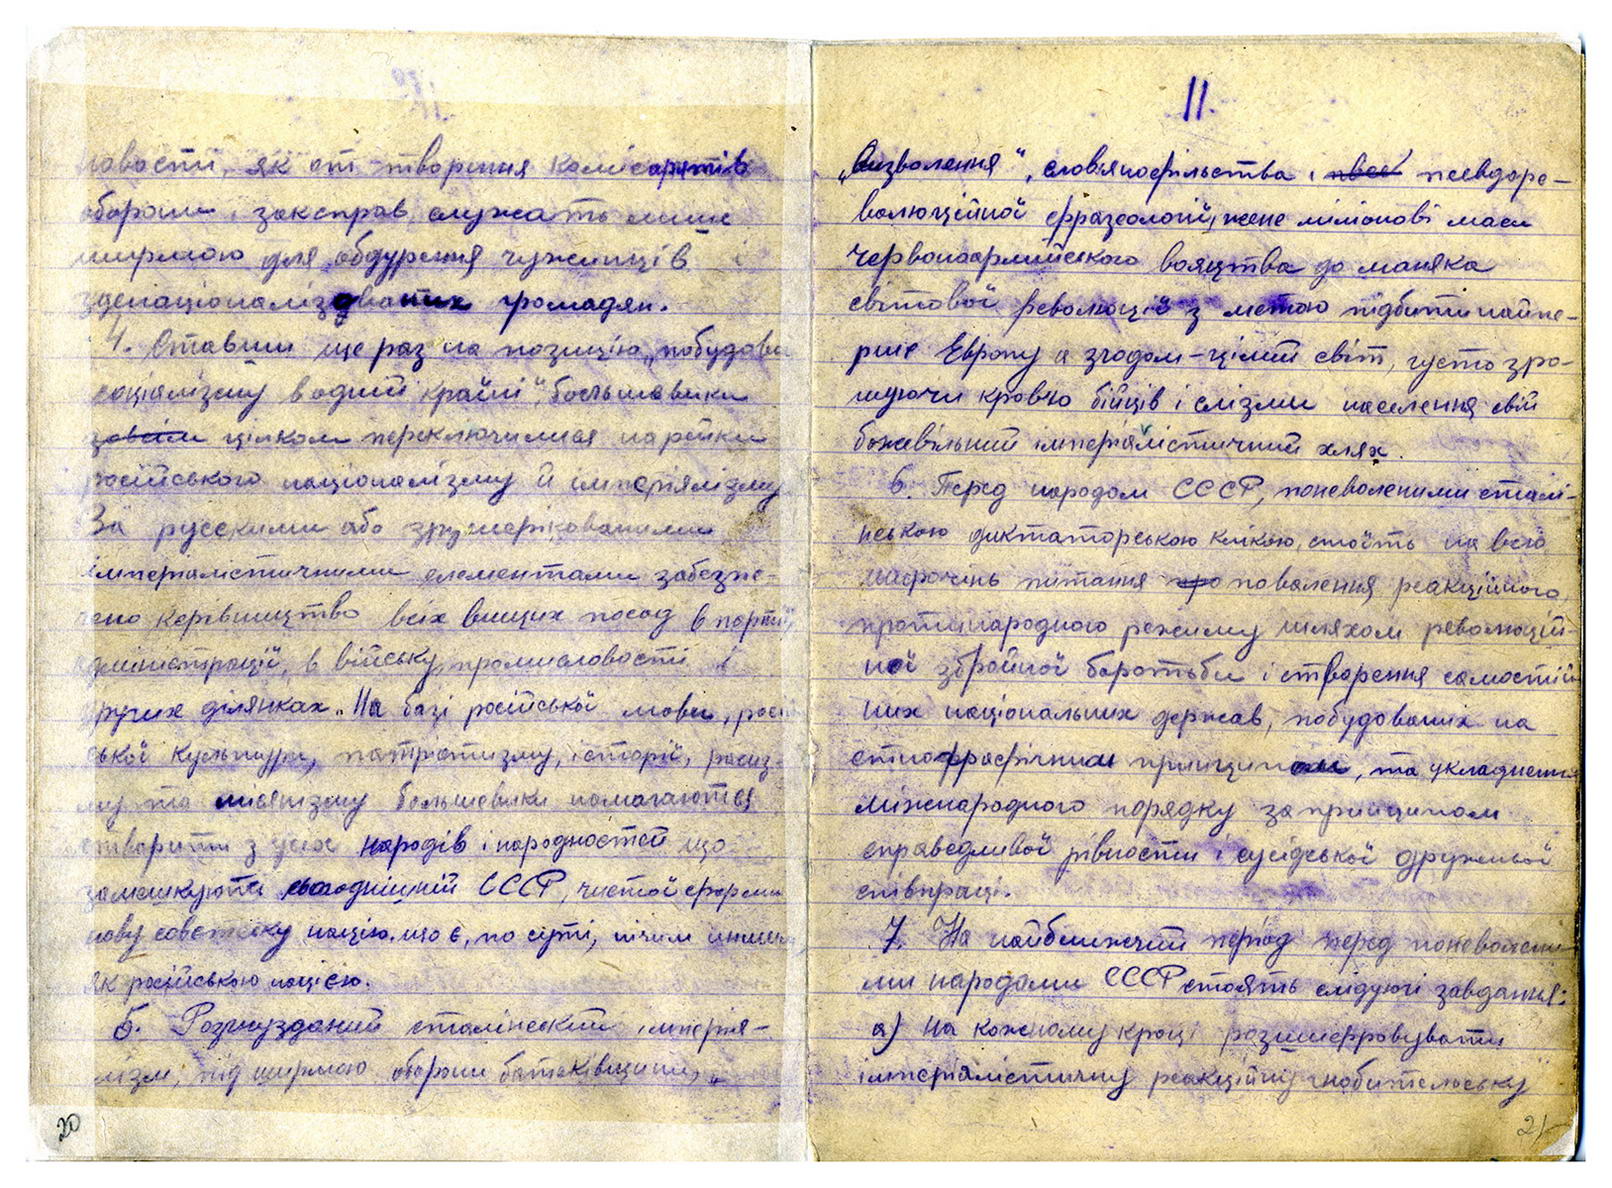 ловости, як от творення комісаріятів
оборони і заксправ, служать лише
ширмою для обдурення чужинців і
зденаціоналізованих громадян.
4. Ставши ще раз на позицію „побудови
соціялізму в одній країні“, большевики
зовсім цілком переключилися на рейки
російського націоналізму й імперіялізму
За русскими або зрусифікованими
імперіялістичними елементами забезпе-
чено керівництво всіх вищих посад в партії,
адміністрації, в війську, промисловості і
других ділянках. На базі російської мови, росій
ської культури, патріотизму, історії, расиз-
му та месіянізму большевики намагаються
створити з усіх народів і народностей що
замешкують сьогоднішній СССР, чистої форми
нову советську націю, що є, по суті, нічим иншим
як російською нацією.
5. Рознузданий сталінський імперія-
лізм, під ширмою оборони батьківщини, „
20
11.
„визволення“, слов'янофільства і псевдоре-
волюційної фразеології, жене міліонові маси
червоноармійського вояцтва до маняка
світової революції з метою підбити найпе-
рше Европу а згодом - цілий світ, густо зро-
шуючи кров'ю бійців і слізми населення свій
божевільний імперіялістичний шлях.
6. Перед народом СССР, поневоленими сталі-
нською диктаторською клікою, стоїть на всю
широчінь питання про повалення реакційного,
протинародного режиму шляхом революцій-
ної збройної боротьби і створення самостій
них національних держав, побудованих на
етнографічним принципом, та укладнення
міжнародного порядку за принципом
справедливої рівности і сусідської дружньої
співпраці.
7. На найближчий період перед поневолени
ми народами СССР стоять слідуючі завдання:
а) На кожному кроці розшифровувати
імперіялістичну реакційну гнобительську
21